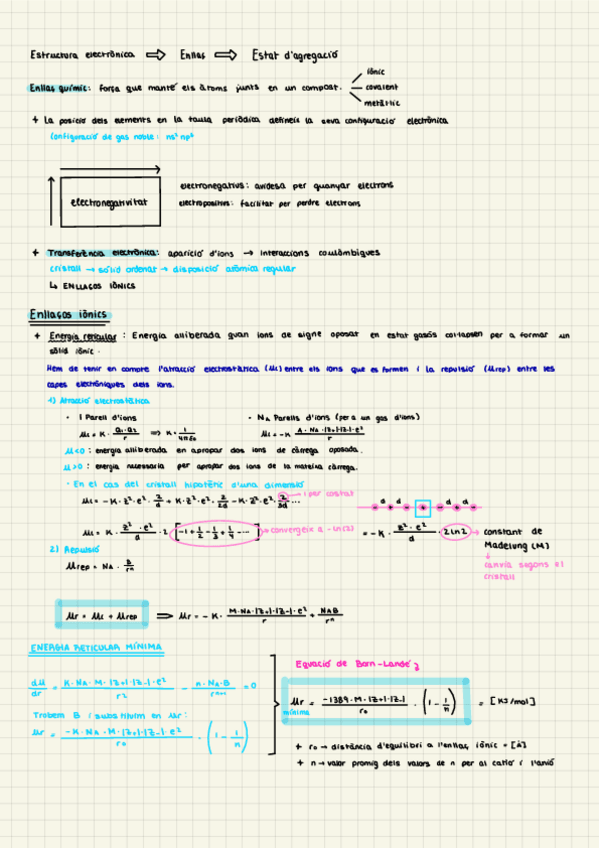 Estructura electrònica ⇨ Enllaç ⇨ Estat d'agregació
iònic
Enllaç químic: força que manté els àtoms junts en un compost. covalent
metàl·lic
+ La posició dels elements en la taula periòdica defineix la seva configuració electrònica
Configuració de gas noble: ns²np⁶
electronegatius: avidesa per guanyar electrons
electronegativitat
electropositius: facilitat per perdre electrons
+ Transferència electrònica: aparició d'ions → interaccions coulòmbiques
cristall → sòlid ordenat → disposició atòmica regular
↳ ENLLAÇOS IÒNICS
Enllaços iònics
+ Energia reticular: Energia alliberada quan ions de signe oposat en estat gasós col·lapsen per a formar un
sòlid iònic.
Hem de tenir en compte l'atracció electrostàtica (μc) entre els ions que es formen i la repulsió (μrep) entre les
capes electròniques dels ions.
1) Atracció electrostàtica
· 1 Parell d'ions · NA Parells d'ions (per a un gas d'ions)
μc = K · Q1·Q2/r ⇒ K = 1/4πε0 μc = -K A·NA·|Z+|·|Z-|·e²/r
μ<0: energia alliberada en apropar dos ions de càrrega oposada.
μ>0: energia necessària per apropar dos ions de la mateixa càrrega.
· En el cas del cristall hipotètic d'una dimensió
1 per costat
μc = -K·Z²·e²·2/d + K·Z²·e²·2/2d - K·Z²·e²·2/3d ... d d d d
μc = K · Z²·e²/d · 2 [-1 + 1/2 - 1/3 + 1/4 - ...] → convergeix a -ln(2) = -K · Z²·e²/d · 2ln2 → constant de
Madelung (M)
↓
canvia segons el
cristall
2) Repulsió
μrep = NA · B/rⁿ
μr = μc + μrep ⇒ μr = -K · M·NA·|Z+|·|Z-|·e²/r + NAB/rⁿ
ENERGIA RETICULAR MÍNIMA
Equació de Born-Landé
dμ/dr = K·NA·M·|Z+|·|Z-|·e²/r² - n·NA·B/rⁿ⁺¹ = 0
μr mínima = -1389·M·|Z+|·|Z-|/r0 · (1 - 1/n) = [KJ/mol]
Trobem B i substituïm en μr:
μr = -K·NA·M·|Z+|·|Z-|·e²/r0 · (1 - 1/n)
+ r0 → distància d'equilibri a l'enllaç iònic = [Å]
+ n → valor promig dels valors de n per al catió i l'anió